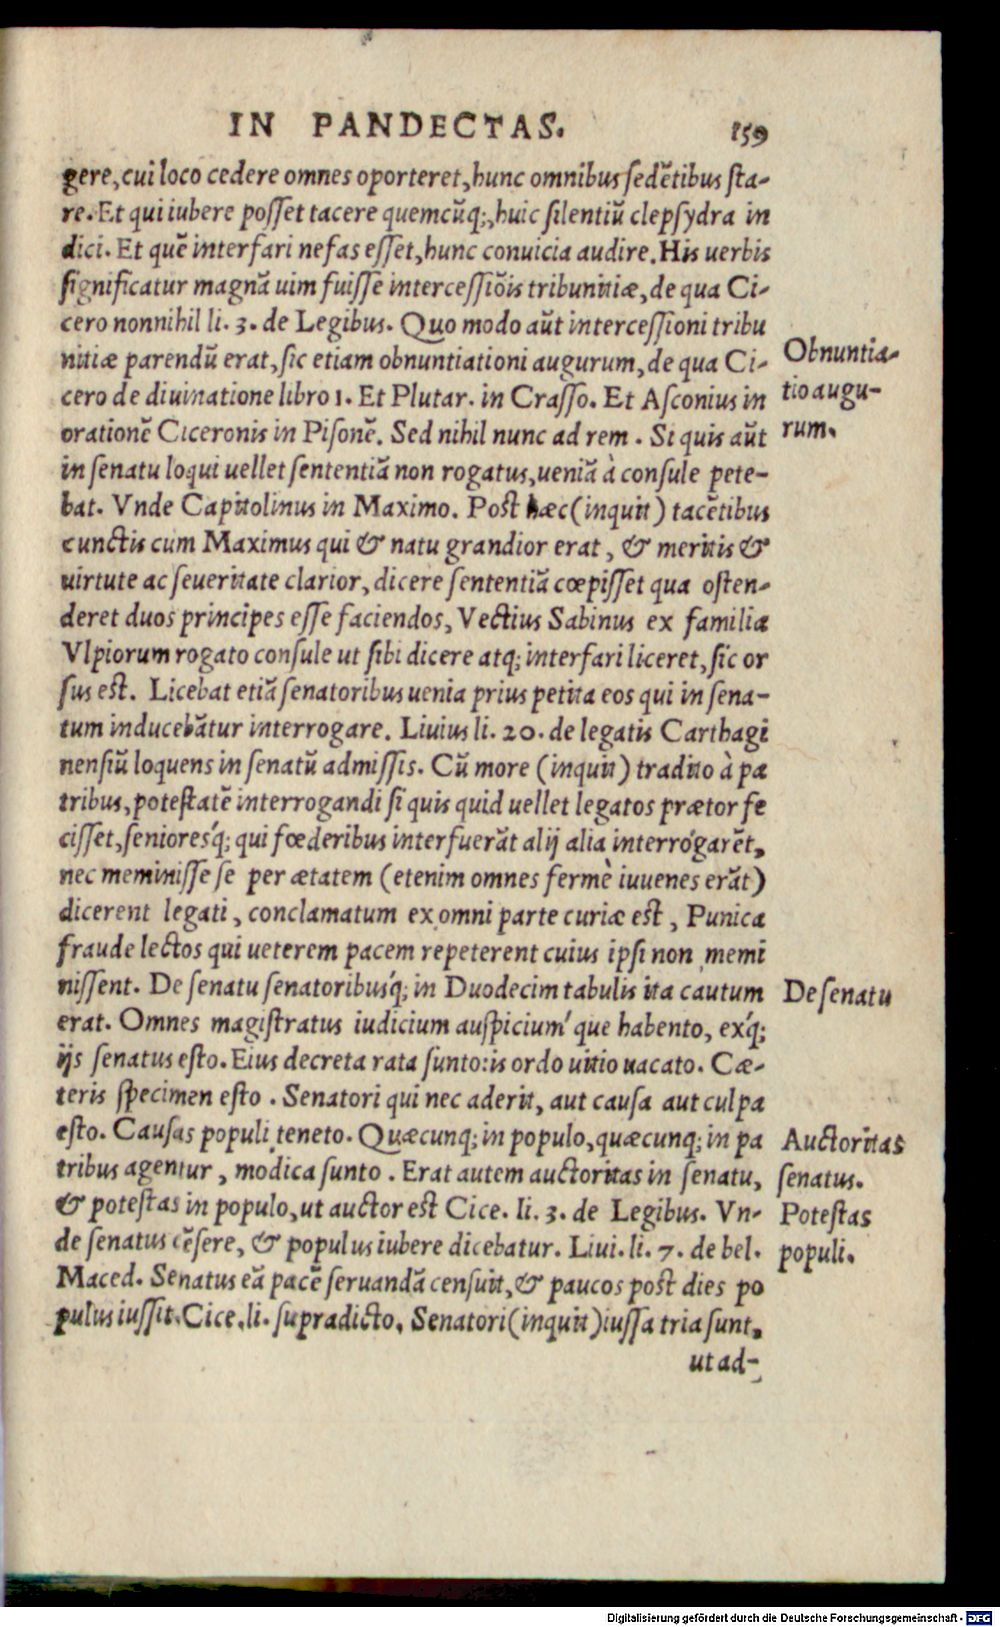 IN PANDECTAS. 159
gere, cui loco cedere omnes oporteret, hunc omnibus sedẽtibus sta-
re. Et qui iubere posset tacere quemcũq;, huic silentiũ clepsydra in
dici. Et quẽ interfari nefas esset, hunc conuicia audire. His uerbis
significatur magnã uim fuisse intercessiõis tribunitiæ, de qua Ci-
cero nonnihil li. 3. de Legibus. Quo modo aũt intercessioni tribu
nitiæ parendũ erat, sic etiam obnuntiationi augurum, de qua Ci-
cero de diuinatione libro 1. Et Plutar. in Crasso. Et Asconius in
orationẽ Ciceronis in Pisonẽ. Sed nihil nunc ad rem. Si quis aũt
in senatu loqui uellet sententiã non rogatus, ueniã à consule pete-
bat. Vnde Capitolinus in Maximo. Post hæc (inquit) tacẽtibus
cunctis cum Maximus qui & natu grandior erat, & meritis &
uirtute ac seueritate clarior, dicere sententiã cœpisset qua osten-
deret duos principes esse faciendos, Vectius Sabinus ex familia
Vlpiorum rogato consule ut sibi dicere atq; interfari liceret, sic or
sus est. Licebat etiã senatoribus uenia prius petita eos qui in sena-
tum inducebãtur interrogare. Liuius li. 20. de legatis Carthagi
nensiũ loquens in senatũ admissis. Cũ more (inquit) tradito à pa
tribus, potestatẽ interrogandi si quis quid uellet legatos prætor fe
cisset, senioresq́; qui fœderibus interfuerãt alij alia interrogarẽt,
nec meminisse se per ætatem (etenim omnes fermè iuuenes erãt)
dicerent legati, conclamatum ex omni parte curiæ est, Punica
fraude lectos qui ueterem pacem repeterent cuius ipsi non memi
nissent. De senatu senatoribusq́; in Duodecim tabulis ita cautum
erat. Omnes magistratus iudicium auspiciuḿque habento, exq́;
ijs senatus esto. Eius decreta rata sunto: is ordo uitio uacato. Cæ-
teris specimen esto. Senatori qui nec aderit, aut causa aut culpa
esto. Causas populi teneto. Quæcunq; in populo, quæcunq; in pa
tribus agentur, modica sunto. Erat autem auctoritas in senatu,
& potestas in populo, ut auctor est Cice. li. 3. de Legibus. Vn-
de senatus cẽsere, & populus iubere dicebatur. Liui. li. 7. de bel.
Maced. Senatus eã pacẽ seruandã censuit, & paucos post dies po
pulus iussit. Cice. li. supradicto. Senatori (inquit) iussa tria sunt,
ut ad-
Obnuntia-
tio augu-
rum.
De senatu
Auctoritas
senatus.
Potestas
populi.
Digitalisierung gefördert durch die Deutsche Forschungsgemeinschaft - DFG